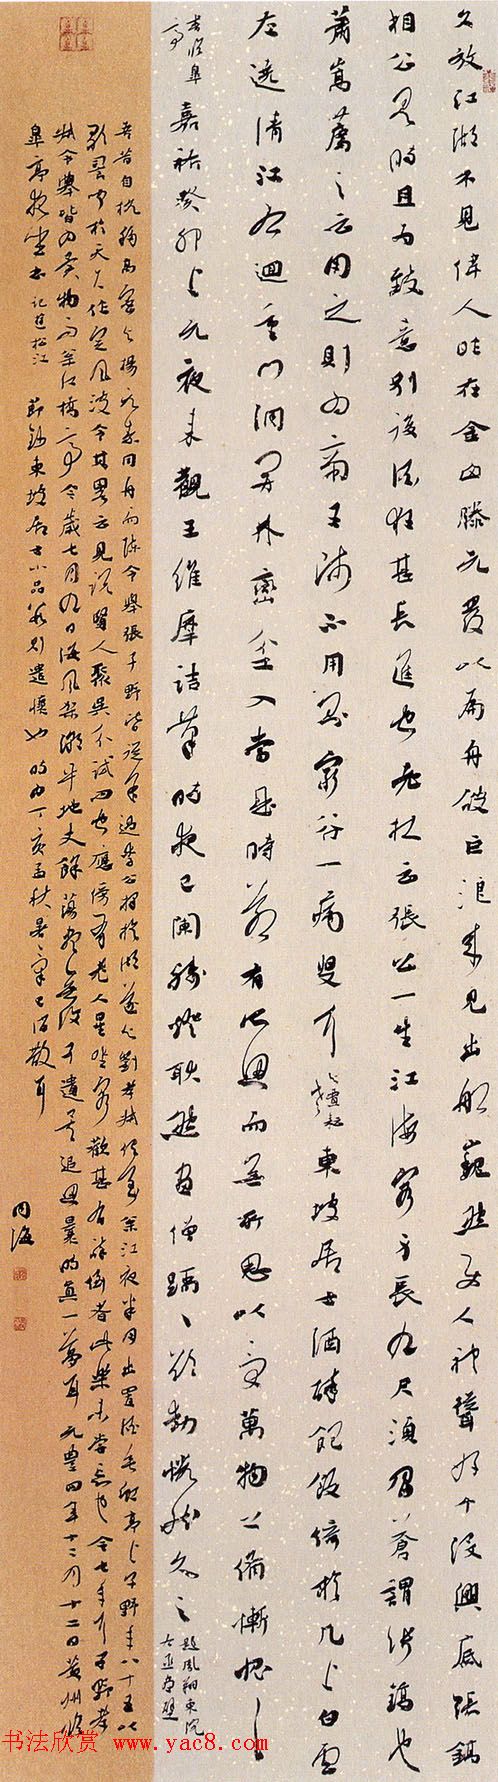 久放江湖不見偉人昨在金山滕元發以扁舟破巨浪來見出船巍然使人神聳好个沒興底張鎬
相公見時且為致意別後酒狂甚長進也老杜云張公一生江海客身長九尺須眉蒼謂張鎬也
蕭嵩薦之云用之則為帝王師不用則窮谷一病叟耳 東坡居士酒醉飽飯倚於几上白雲
左遶清江右洄重門洞開林巒坌入當是時若有所思而無所思以受萬物之備慚愧慚愧
書臨皋亭 嘉祐癸卯上元夜來觀王維摩詰筆時夜已闌殘燈耿然畫僧踽踽欲動恍然久之 題鳳翔東院右丞畫壁
吾昔自杭移高密與楊元素同舟而陳令舉張子野皆從余過李公擇於湖遂與劉孝叔俱至松江夜半月出置酒垂虹亭上子野年八十五以
歌詞聞於天下作定風波令其略云見說賢人聚吳分試問也應傍有老人星坐客歡甚有醉倒者此樂未嘗忘也今七年耳子野孝
叔令舉皆為異物而松江橋亭今歲七月九日海風架潮平地丈餘蕩盡無復孑遺矣追思曩時真一夢耳元豐四年十二月十二日黃州臨
皋亭夜坐書 記遊松江 節錄東坡居士小品數則遣懷也 丁亥孟秋暑
书法欣赏 www.yac8.com